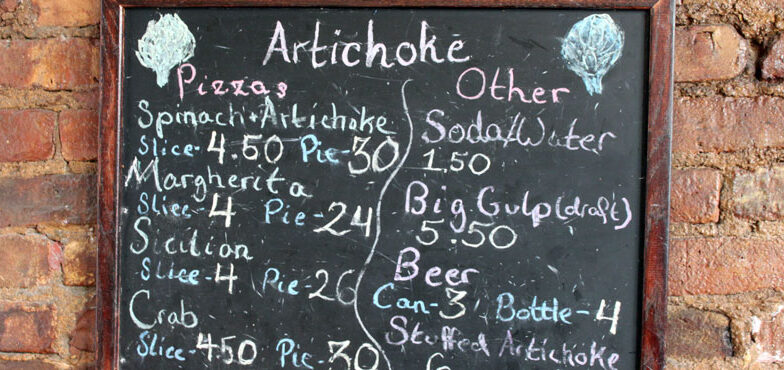 Artichoke
Pizzas
Spinach + Artichoke
Slice - 4.50 Pie - 30
Margherita
Slice - 4 Pie - 24
Sicilian
Slice - 4 Pie - 26
Crab
Slice - 4.50 Pie - 30
Other
Soda/Water
1.50
Big Gulp (draft)
5.50
Beer
Can - 3 Bottle - 4
Stuffed Artichoke